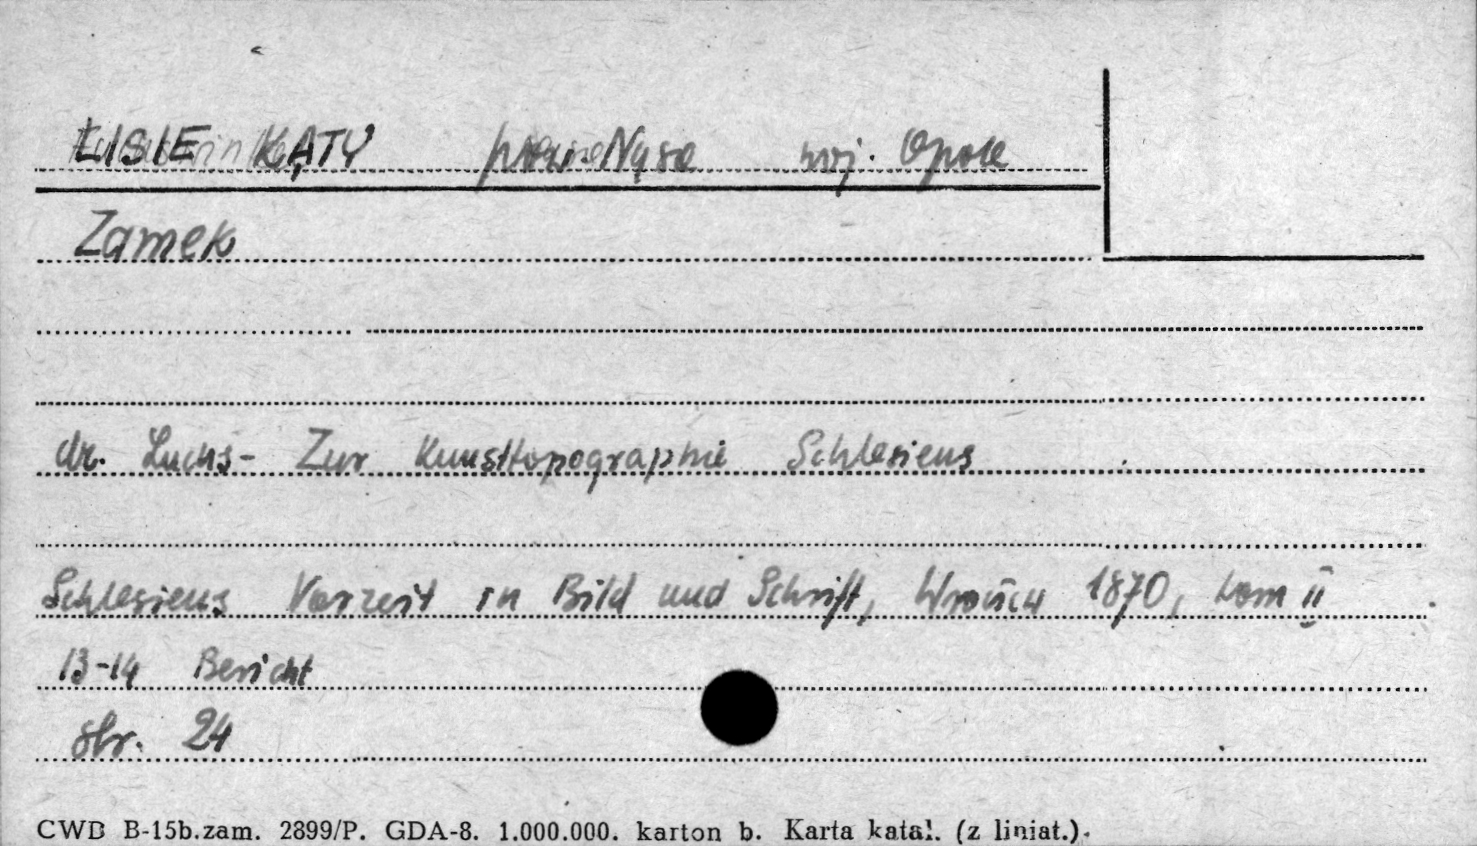 ŁISIE KĄTY pow. Nysa woj. Opole
Zamek
dr. Luchs - Zur Kunsttopographie Schlesiens
Schlesiens Vorzeit in Bild und Schrift, 1870, tom II
13-14 Bericht
str. 24
CWD B-15b.zam. 2899/P. GDA-8. 1.000.000. karton b. Karta katal. (z liniat.).